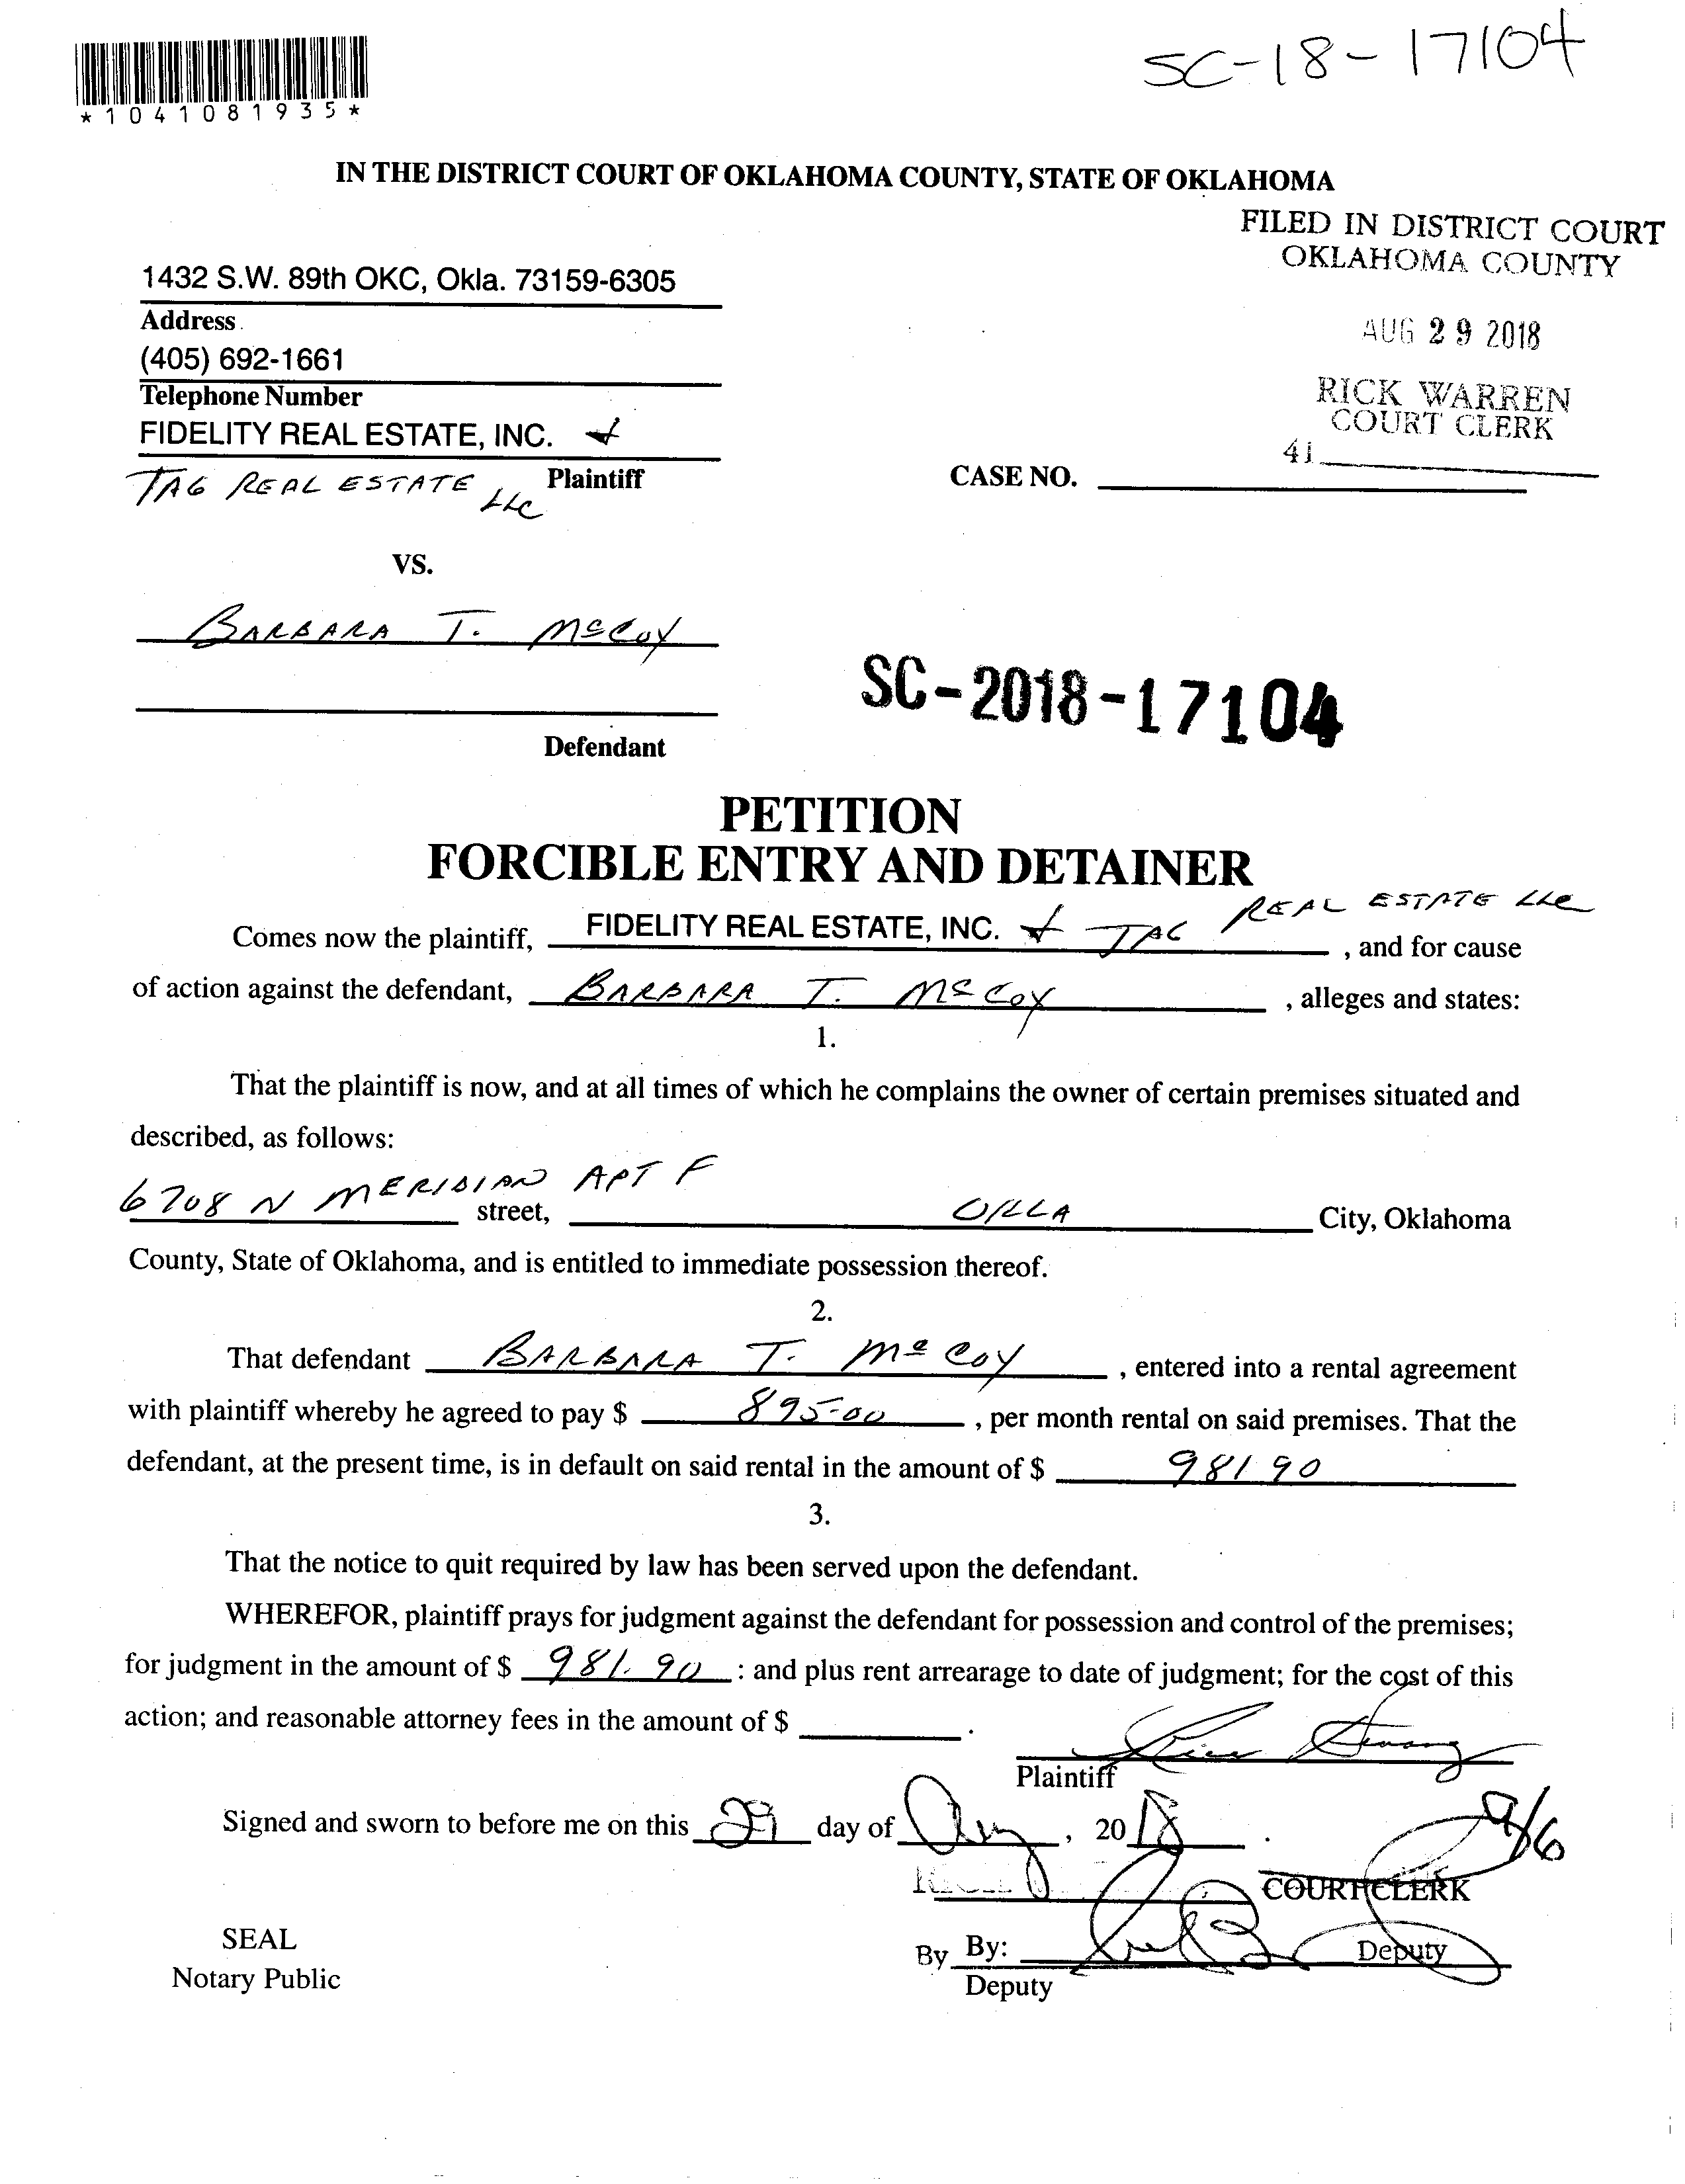 SC-18-17104
*1041081935*
IN THE DISTRICT COURT OF OKLAHOMA COUNTY, STATE OF OKLAHOMA
FILED IN DISTRICT COURT
OKLAHOMA COUNTY
1432 S.W. 89th OKC, Okla. 73159-6305
Address
AUG 29 2018
(405) 692-1661
Telephone Number
RICK WARREN
COURT CLERK
FIDELITY REAL ESTATE, INC. +
41
TAG REAL ESTATE LLC Plaintiff
CASE NO.
VS.
BARBARA T. McCOY
SC-2018-17104
Defendant
PETITION
FORCIBLE ENTRY AND DETAINER
Comes now the plaintiff, FIDELITY REAL ESTATE, INC. + TAG REAL ESTATE LLC, and for cause
of action against the defendant, BARBARA T. McCOY, alleges and states:
1.
That the plaintiff is now, and at all times of which he complains the owner of certain premises situated and
described, as follows:
6708 N MERIDIAN APT F street, OKLA City, Oklahoma
County, State of Oklahoma, and is entitled to immediate possession thereof.
2.
That defendant BARBARA T. McCOY, entered into a rental agreement
with plaintiff whereby he agreed to pay $ 895-00, per month rental on said premises. That the
defendant, at the present time, is in default on said rental in the amount of $ 981 90
3.
That the notice to quit required by law has been served upon the defendant.
WHEREFOR, plaintiff prays for judgment against the defendant for possession and control of the premises;
for judgment in the amount of $ 981.90 : and plus rent arrearage to date of judgment; for the cost of this
action; and reasonable attorney fees in the amount of $ .
Plaintiff
Signed and sworn to before me on this 29 day of Aug, 2018.
9/6
COURT CLERK
SEAL
By By: Deputy
Notary Public
Deputy